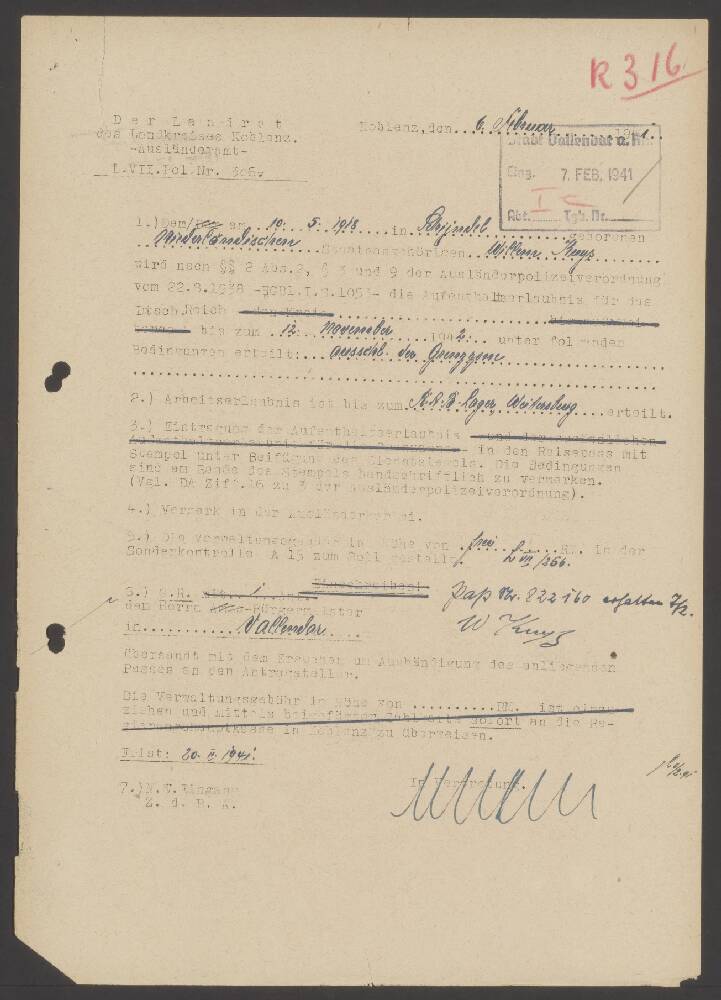 R 316
Der Landrat
des Landkreises Koblenz.
-Ausländeramt-
I.VII.Pol.Nr.
Koblenz, den 6. Februar 1941.
Stadt Vallendar a. Rh.
Eing. 7. FEB. 1941
I C
Abt. Tgb. Nr.
1.) Dem/Der am 10. 5. 1918 in Schijndel geborenen
Niederländischen Staatsangehörigen Willem Kuys
wird nach §§ 2 Abs.2, § 3 und 9 der Ausländerpolizeiverordnung
vom 22.8.1938 -RGBl.I.S.1053- die Aufenthaltserlaubnis für das
Dtsch.Reich den Kreis
bis zum 12. November 1942. unter folgenden
Bedingungen erteilt: ausschl. der Grenzzone
2.) Arbeitserlaubnis ist bis zum Lager, Weitersburg erteilt.
3.) Eintragung der Aufenthaltserlaubnis und der
in den Reisepass mit
Stempel unter Beifügung des Dienstsiegels. Die Bedingungen
sind am Rande des Stempels handschriftlich zu vermerken.
(Vgl. DA Ziff.16 zu § 3 der Ausländerpolizeiverordnung).
4.) Vermerk in der Ausländerkartei.
5.) Die Verwaltungsgebühr in Höhe von frei RM. in der
Sonderkontrolle A 15 zum Soll gestellt.
Einschreiben!
6.) U.R.
den Herrn Amts-Bürgermeister
in Vallendar
Paß Nr. 822160 erhalten 7/2.
W Kuys
übersandt mit dem Ersuchen um Aushändigung des anliegenden
Passes an den Antragsteller.
Die Verwaltungsgebühr in Höhe von RM. ist einzu-
ziehen und mittels beigefügter Zahlkarte sofort an die Re-
gierungshauptkasse in Koblenz zu überweisen.
Frist: 20. II. 1941.
7.) N.V. Eingang
Z. d. A.
In Vertretung.